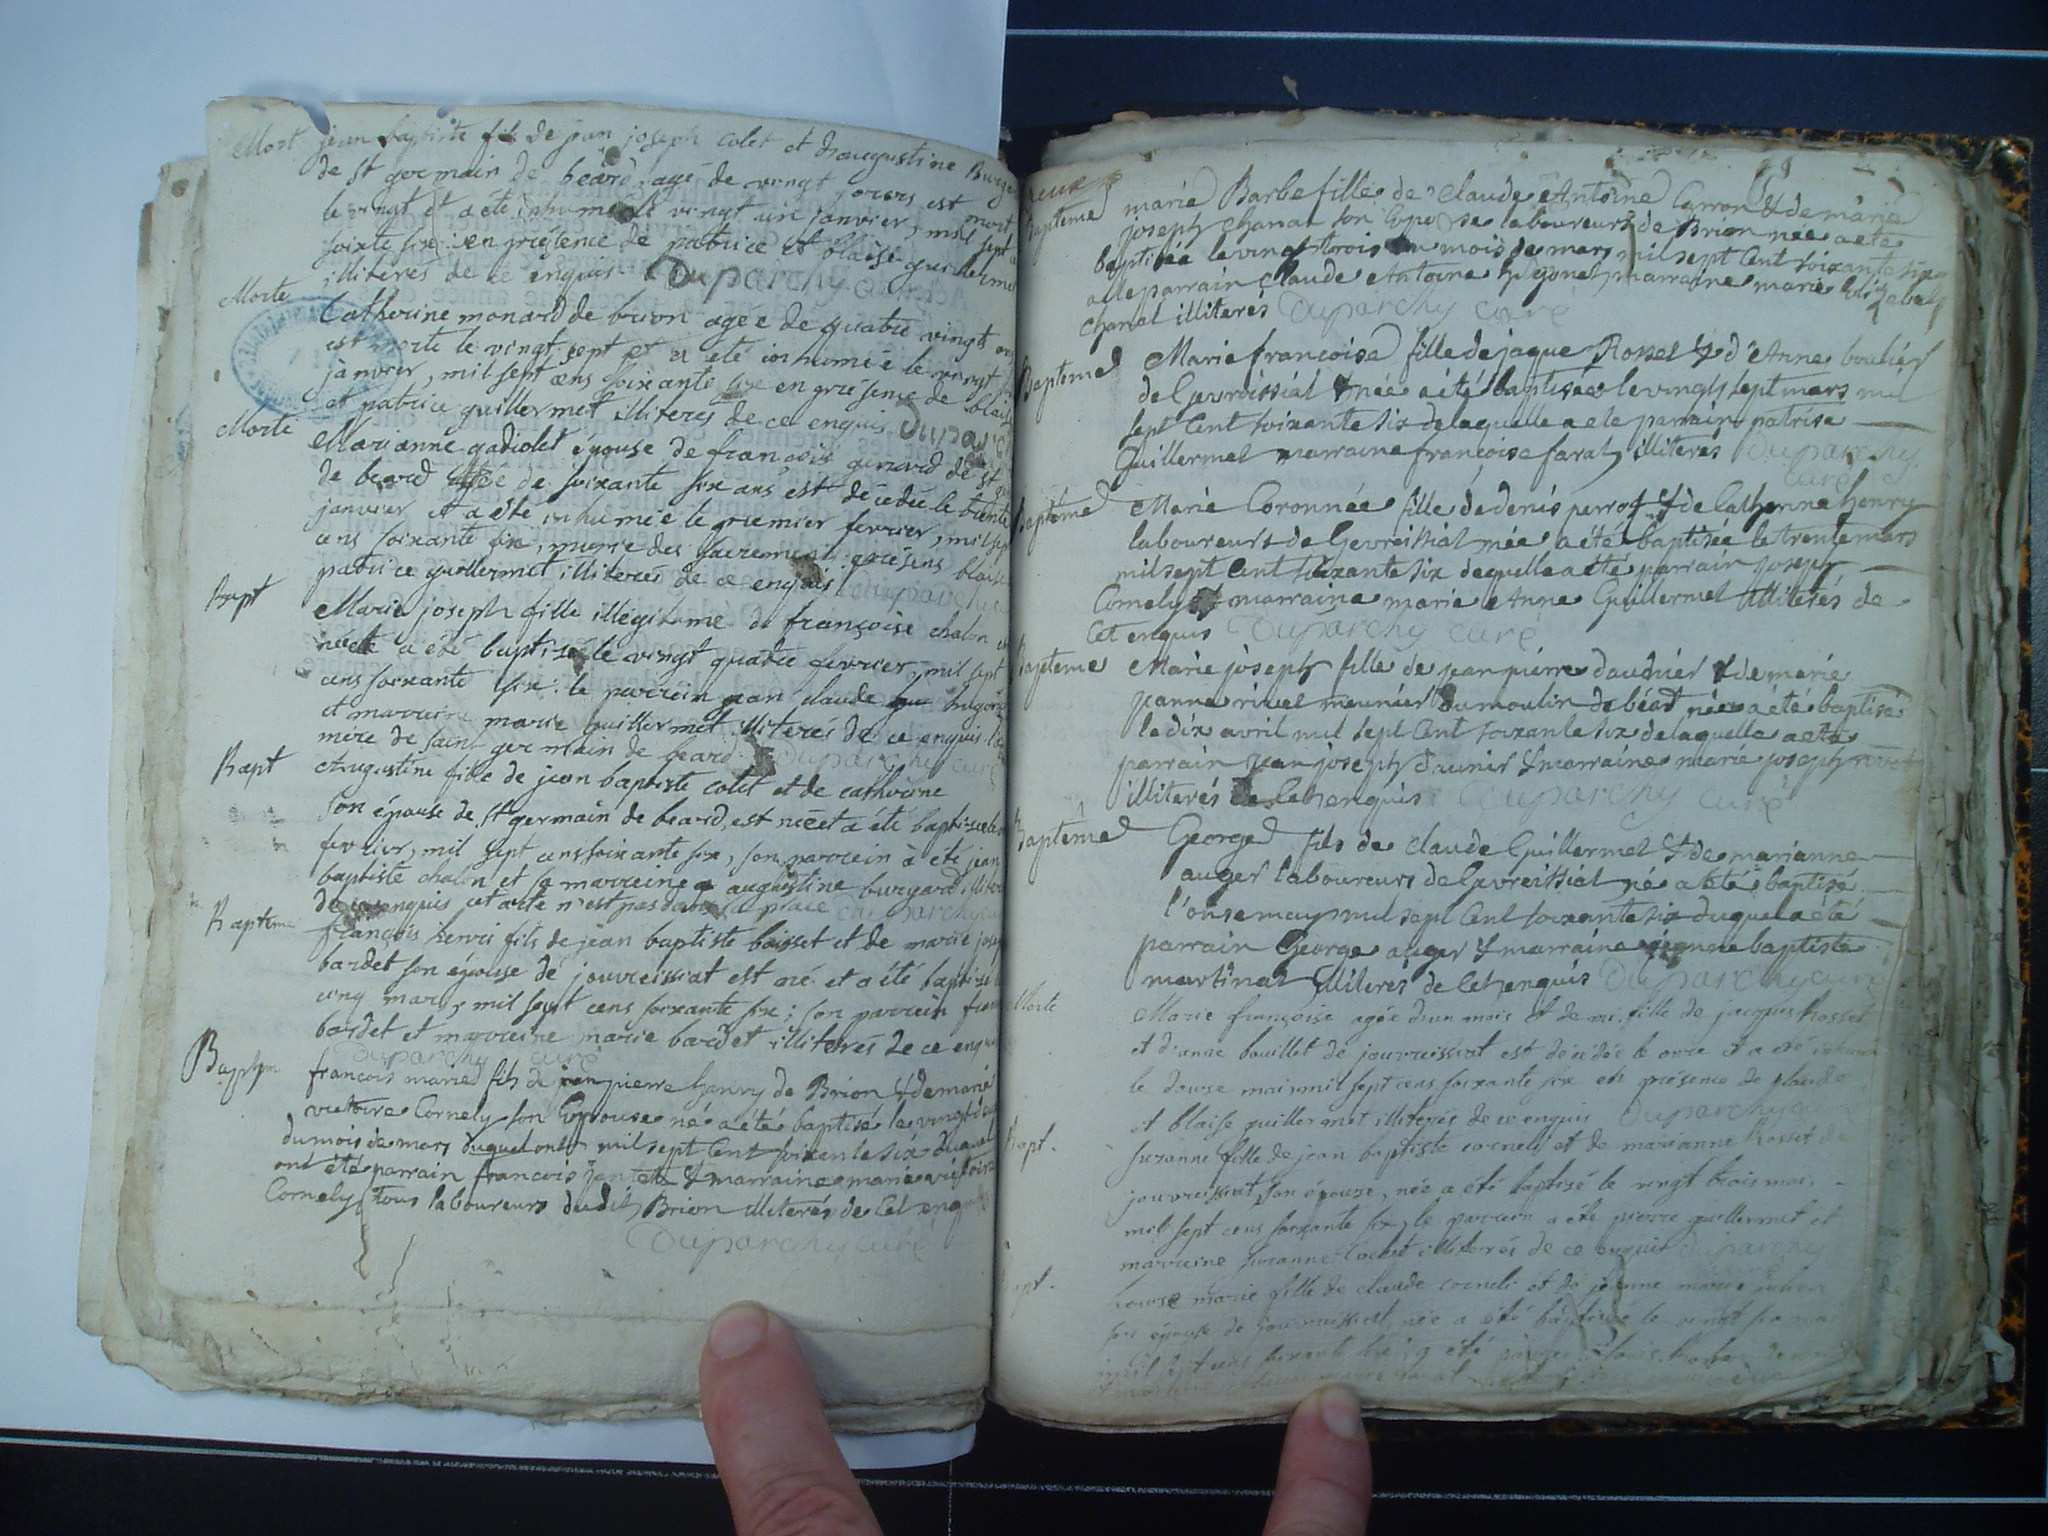 Mort jean baptiste fils de jean joseph colet et d'augustine Burga
de st germain de béard, agé de vingt jours est mort
le vingt et a été inhumé le vingt un janvier, mil sept
soixte six: en présence de patrice et blaise guillermet
illiterés de ce enquis. Duparchy curé
Morte Catherine monard de brion agée de quatre vingts ans
est morte le vingt sept et a eté inhumée le vingt
janvier, mil sept cens soixante six en présence de blaise
et patrice guillermet illiterés de ce enquis Duparc
Morte Marianne gadiolet épouse de françois girard de st
de beard agée de soixante six ans est décédée le trente
janvier et a été inhumée le premier fevrier, mil sept
cens soixante six, munie des sacremens: présens blaise
patrice guillermet illiterés de ce enquis Duparchy
Bapt Marie joseph fille illégitime de françoise chalon
née et a été baptisée le vingt quatre fevrier, mil sept
cens soixante six: le parrein jean claude
et marreine marie guillermet illiterés de ce enquis. la
mère de saint germain de beard. Duparchy curé
Bapt Augustine fille de jean baptiste colet et de catherine
son épouse de st germain de beard, est née et a été baptisée le
fevrier, mil sept cens soixante six, son parrein à été jean
baptiste chalon et sa marreine augustine burgard illiter
de ce enquis cet acte n'est pas dans sa place Duparchy cu
Bapteme françois henri fils de jean baptiste boisset et de marie josep
bardet son épouse de jouvreissiat est né et a été baptisé
cinq mars, mil sept cens soixante six: son parrein fran
bardet et marreine marie bardet illiterés de ce enquis
Duparchy curé
Baptem francois marie fils de jean pierre henry de Brion & de marie
victoire Cornely son Epouse né a été baptisé le vingt deux
du mois de mars duquel ont mil sept Cent soixante six duquel
ont été parrain francois & marraine marie victoire
Cornely tous laboureurs dudit Brion illiterés de Cet enquis
Duparchy curé
deux
Bapteme marie Barbe fille de Claude Antoine Carron & de marie
joseph Chanal son Epouse laboureurs de Brion née a été
baptisée le vingt trois du mois de mars mil sept Cent soixante six
a été parrain Claude Antoine marraine marie
Chanal illiterés Duparchy curé
Bapteme Marie francoise fille de jaque Rosset & d'Anne bouliet
de Gevreissiat & née a été baptisée le vingt sept mars mil
sept Cent soixante six de laquelle a été parrain patrise
Guillermet marraine francoise farat illiterés Duparchy
curé
Baptême Marie Coronnée fille de denis perrot & de Catherine henry
laboureurs de Gevreissiat née a été baptisée le trente mars
mil sept Cent soixante six dequelle a été parrain joseph
Cornely & marraine marie Anne Guillermet illiterés de
Cet enquis Duparchy curé
Bapteme Marie joseph fille de jean pierre daudnier & de marie
jeanne rivet meunier du moulin de béard née a été baptisé
le dix avril mil sept Cent soixante six de laquelle a été
parrain jean joseph & marraine marie joseph
illiterés de Cet enquis Duparchy curé
Baptême George fils de claude Guillermet & de marianne
auger laboureurs de Gevreissiat né a été baptisé
l'onse may mil sept Cent soixante six duquel a été
parrain George auger & marraine jeanne baptiste
martinat illiterés de Cet enquis Duparchy curé
Morte Marie françoise agée d'un mois et demi. fille de jacques Rosset
et d'anne bouillet de jouvreissiat est décédée le onze et a été inhum
le douse mai mil sept cens soixante six en présence de claude
et blaise guillermet illiterés de ce enquis Duparchy cu
Bapt. suzanne fille de jean baptiste corneli et de marianne Rosset de
jouvreissiat, son épouse, née a été baptisé le vingt trois mai,
mil sept cens soixante six, le parrein a été pierre guillermet et
marreine suzanne illiterés de ce enquis Duparchy
Bapt. marie fille de claude corneli et de jeanne marie
son épouse de jouvreissiat, née a été baptisée le vingt six mai
mil sept cens soixante six; a été